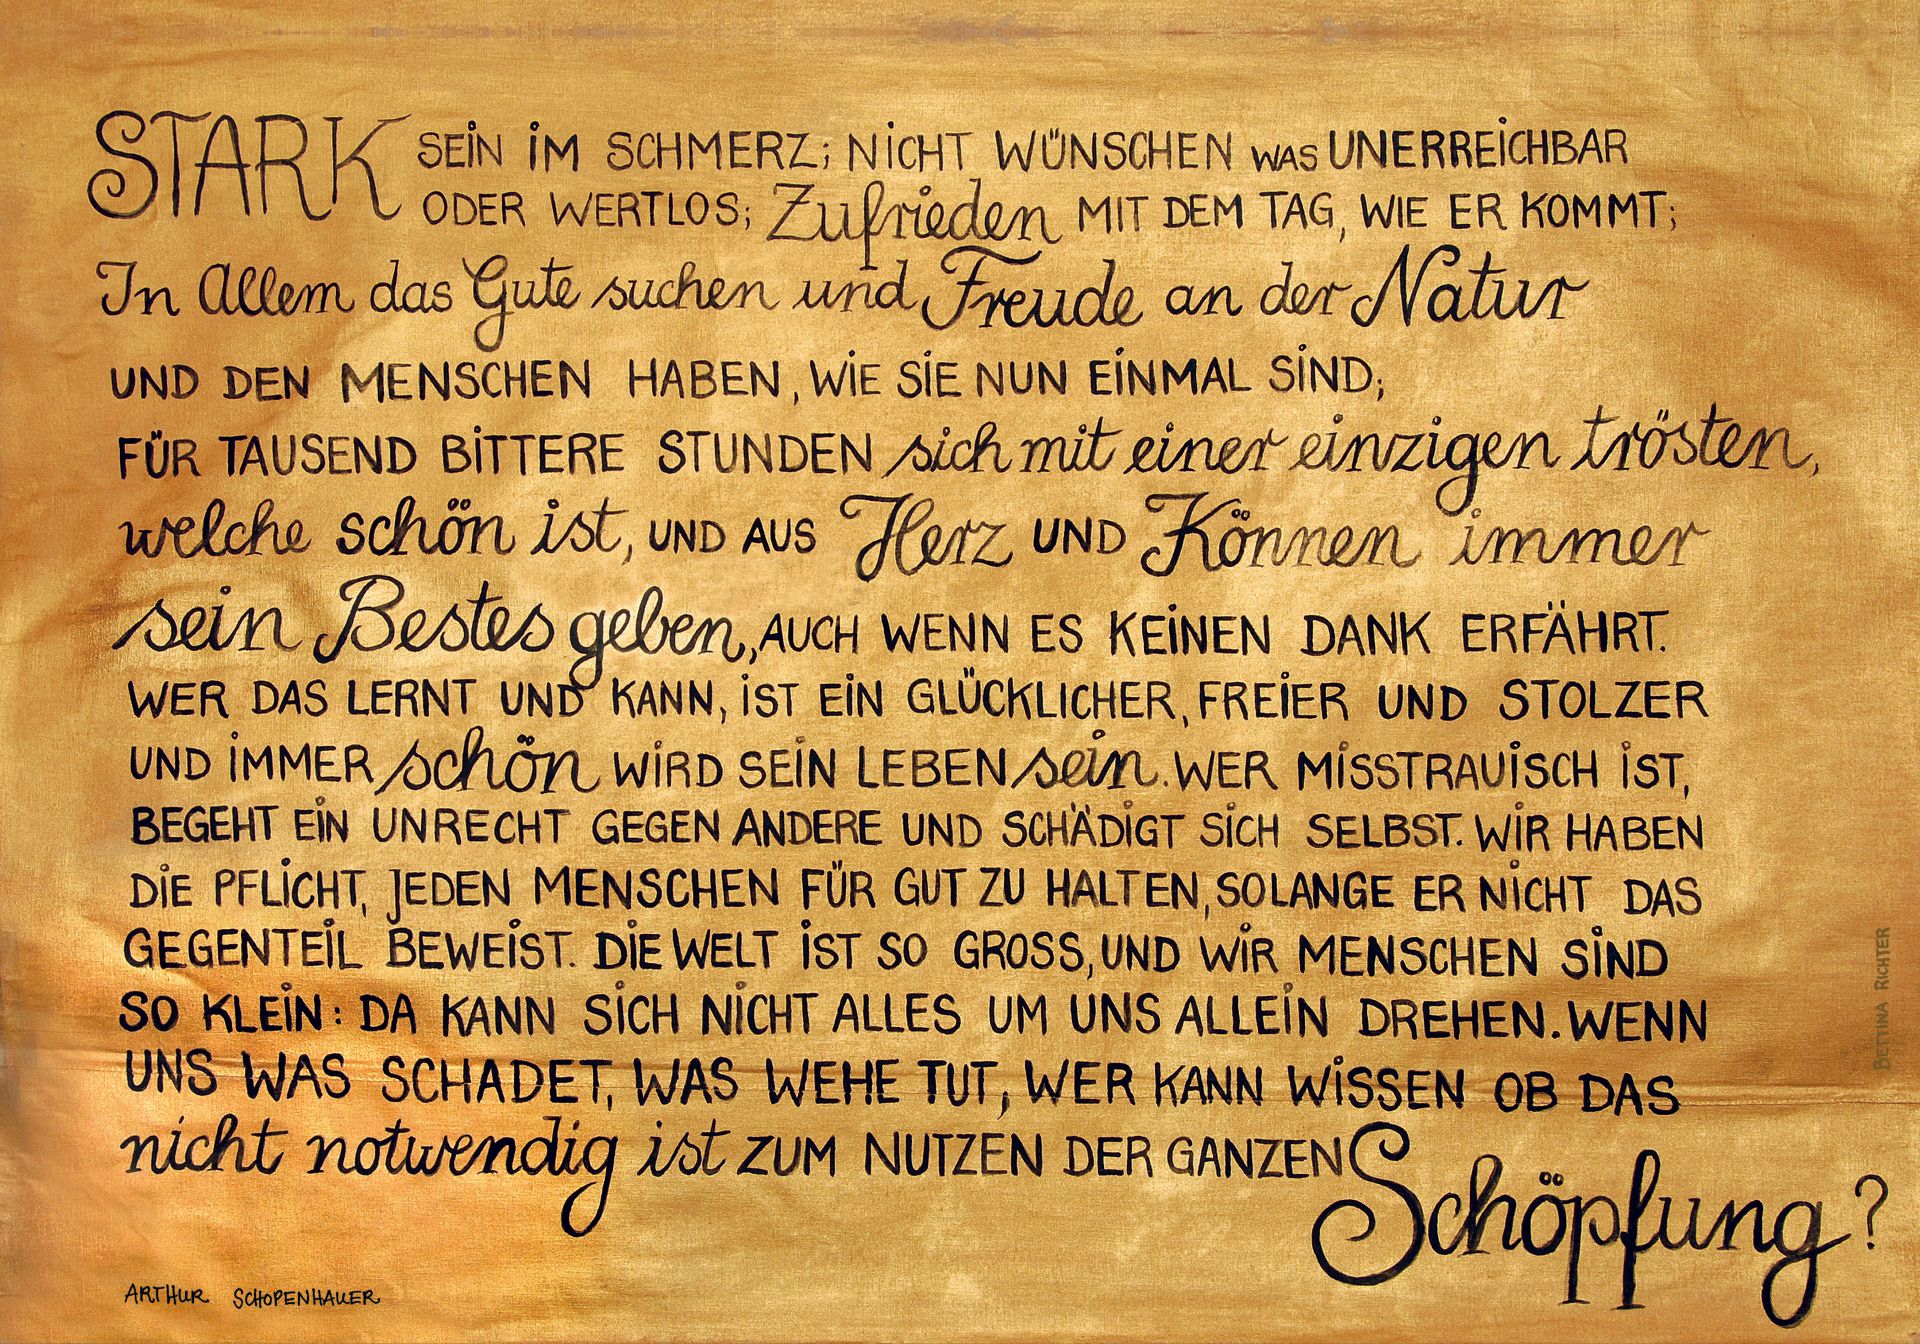 STARK SEIN IM SCHMERZ; NICHT WÜNSCHEN WAS UNERREICHBAR
ODER WERTLOS; Zufrieden MIT DEM TAG, WIE ER KOMMT;
In Allem das Gute suchen und Freude an der Natur
UND DEN MENSCHEN HABEN, WIE SIE NUN EINMAL SIND;
FÜR TAUSEND BITTERE STUNDEN sich mit einer einzigen trösten,
welche schön ist, UND AUS Herz UND Können immer
sein Bestes geben, AUCH WENN ES KEINEN DANK ERFÄHRT.
WER DAS LERNT UND KANN, IST EIN GLÜCKLICHER, FREIER UND STOLZER
UND IMMER schön WIRD SEIN LEBEN sein. WER MISSTRAUISCH IST,
BEGEHT EIN UNRECHT GEGEN ANDERE UND SCHÄDIGT SICH SELBST. WIR HABEN
DIE PFLICHT, JEDEN MENSCHEN FÜR GUT ZU HALTEN, SOLANGE ER NICHT DAS
GEGENTEIL BEWEIST. DIE WELT IST SO GROSS, UND WIR MENSCHEN SIND
SO KLEIN: DA KANN SICH NICHT ALLES UM UNS ALLEIN DREHEN. WENN
UNS WAS SCHADET, WAS WEHE TUT, WER KANN WISSEN OB DAS
nicht notwendig ist ZUM NUTZEN DER GANZEN Schöpfung?
ARTHUR SCHOPENHAUER
BETTINA RICHTER